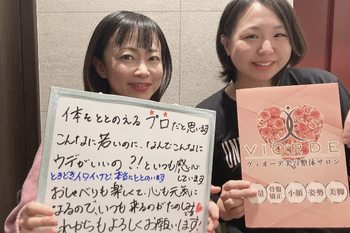 体をととのえるプロだと思います
こんなに若いのに、なんでこんなに
ウデがいいの?!といつも感心
しています
ときどきイタイけど本当にととのいます
おしゃべりも楽しくて、心も元気に
なるので、いつも来るのがたのしみ
です
これからもよろしくお願いします!
VIORDE
ヴィオーデ美容整体サロン
骨盤
矯正
小顔
姿勢
美脚